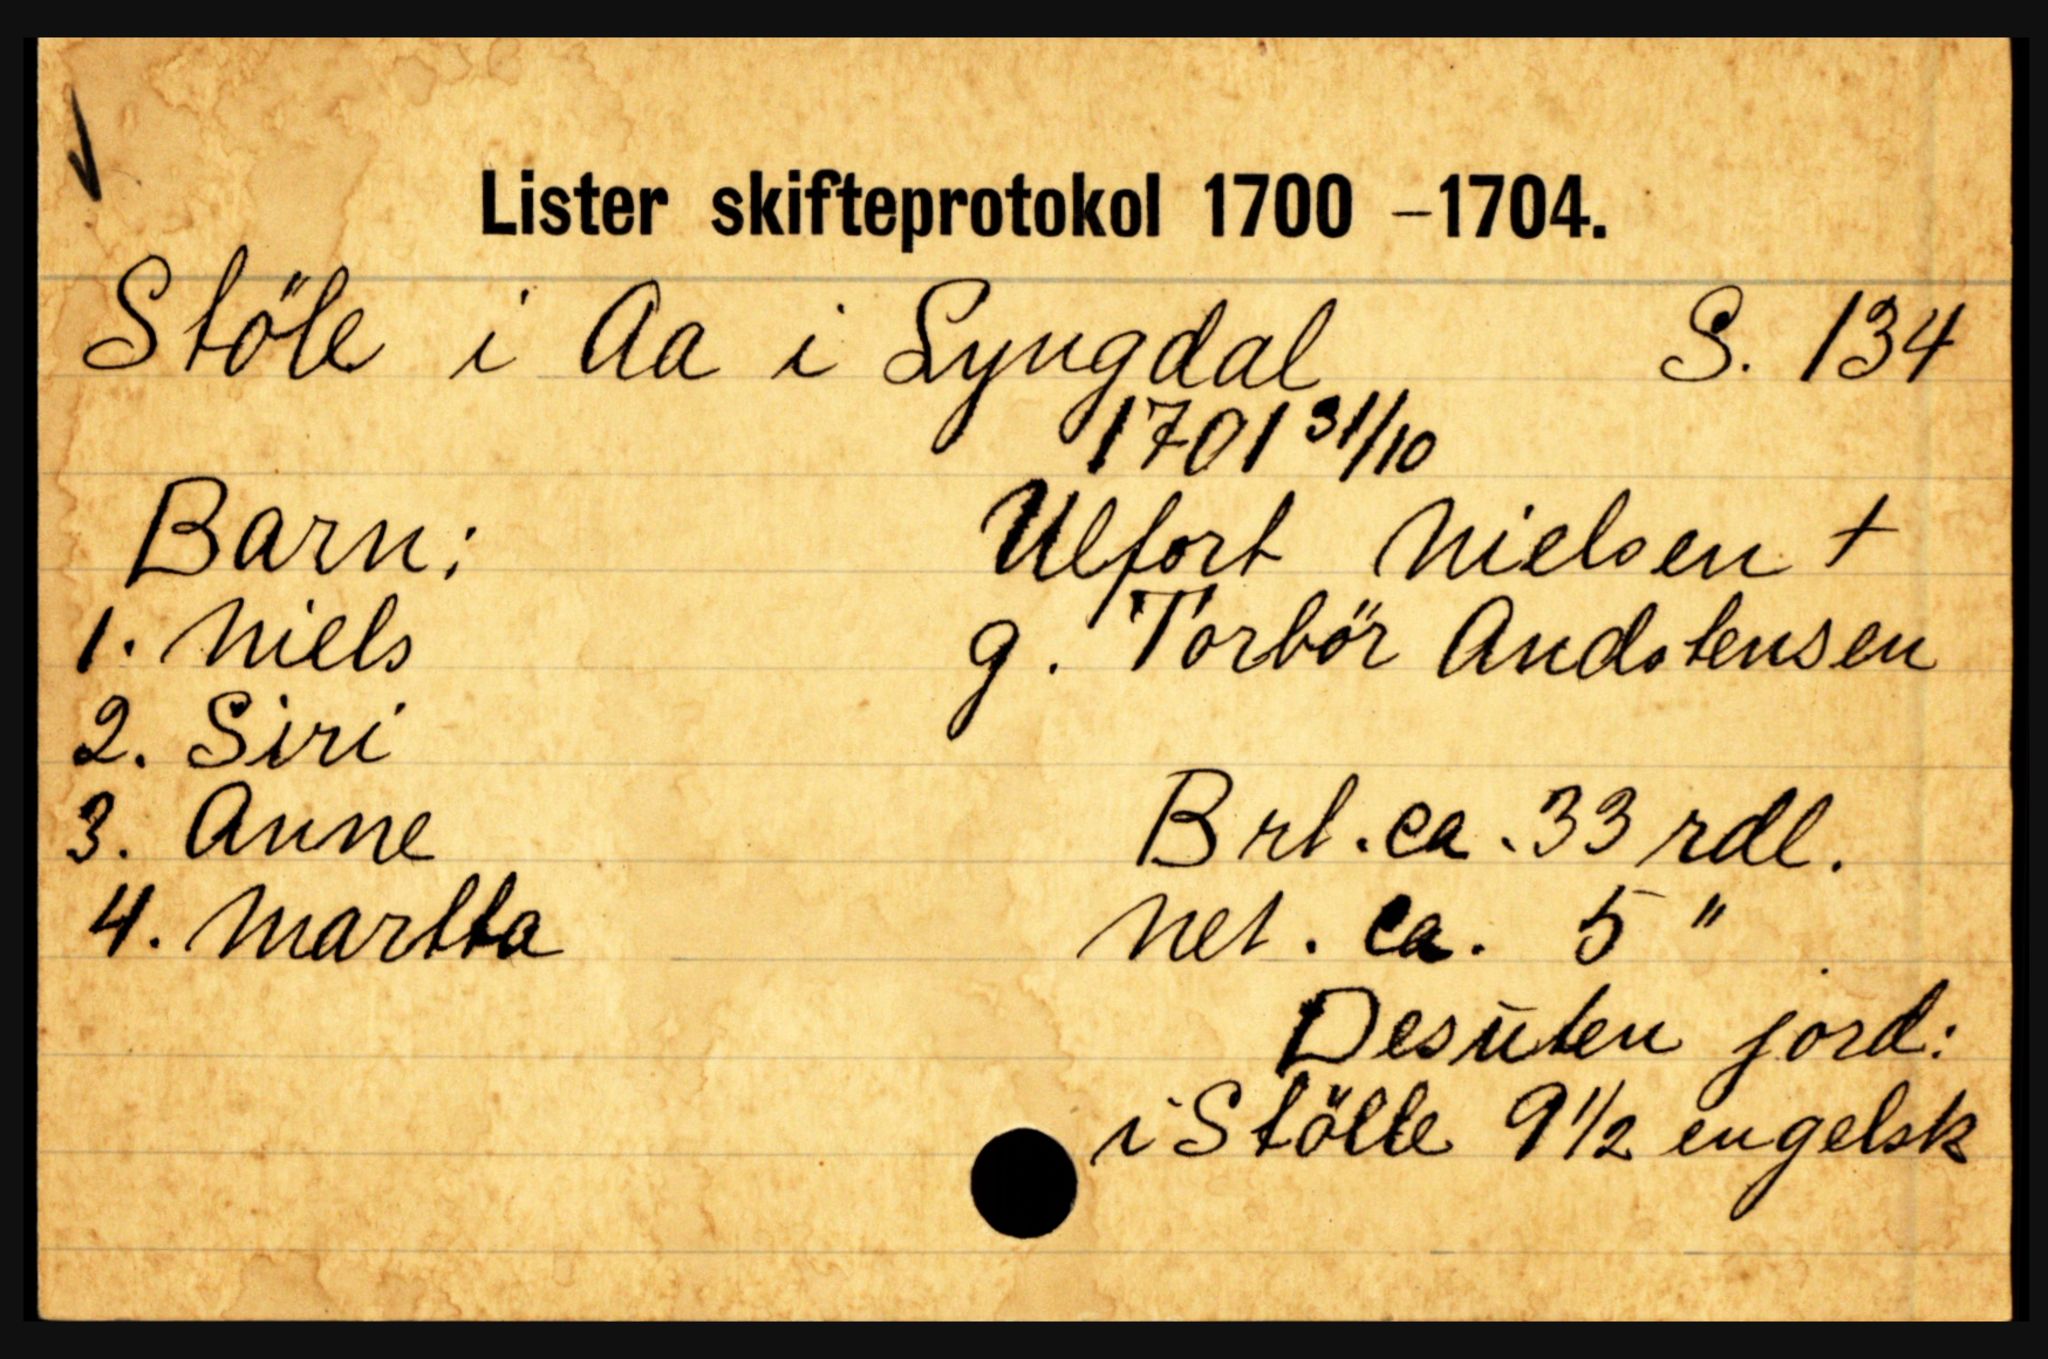 Lister skifteprotokol 1700 – 1704.
Stöle i Aa i Lyngdal S. 134
1701 31/10
Barn: Ulfort Nielsen +
1. Niels g. Torbör Andstensen
2. Siri
3. Anne Brt. ca. 33 rdl.
4. Martta Net. ca. 5 "
Desuten jord:
i Stölle 9 1/2 engelsk